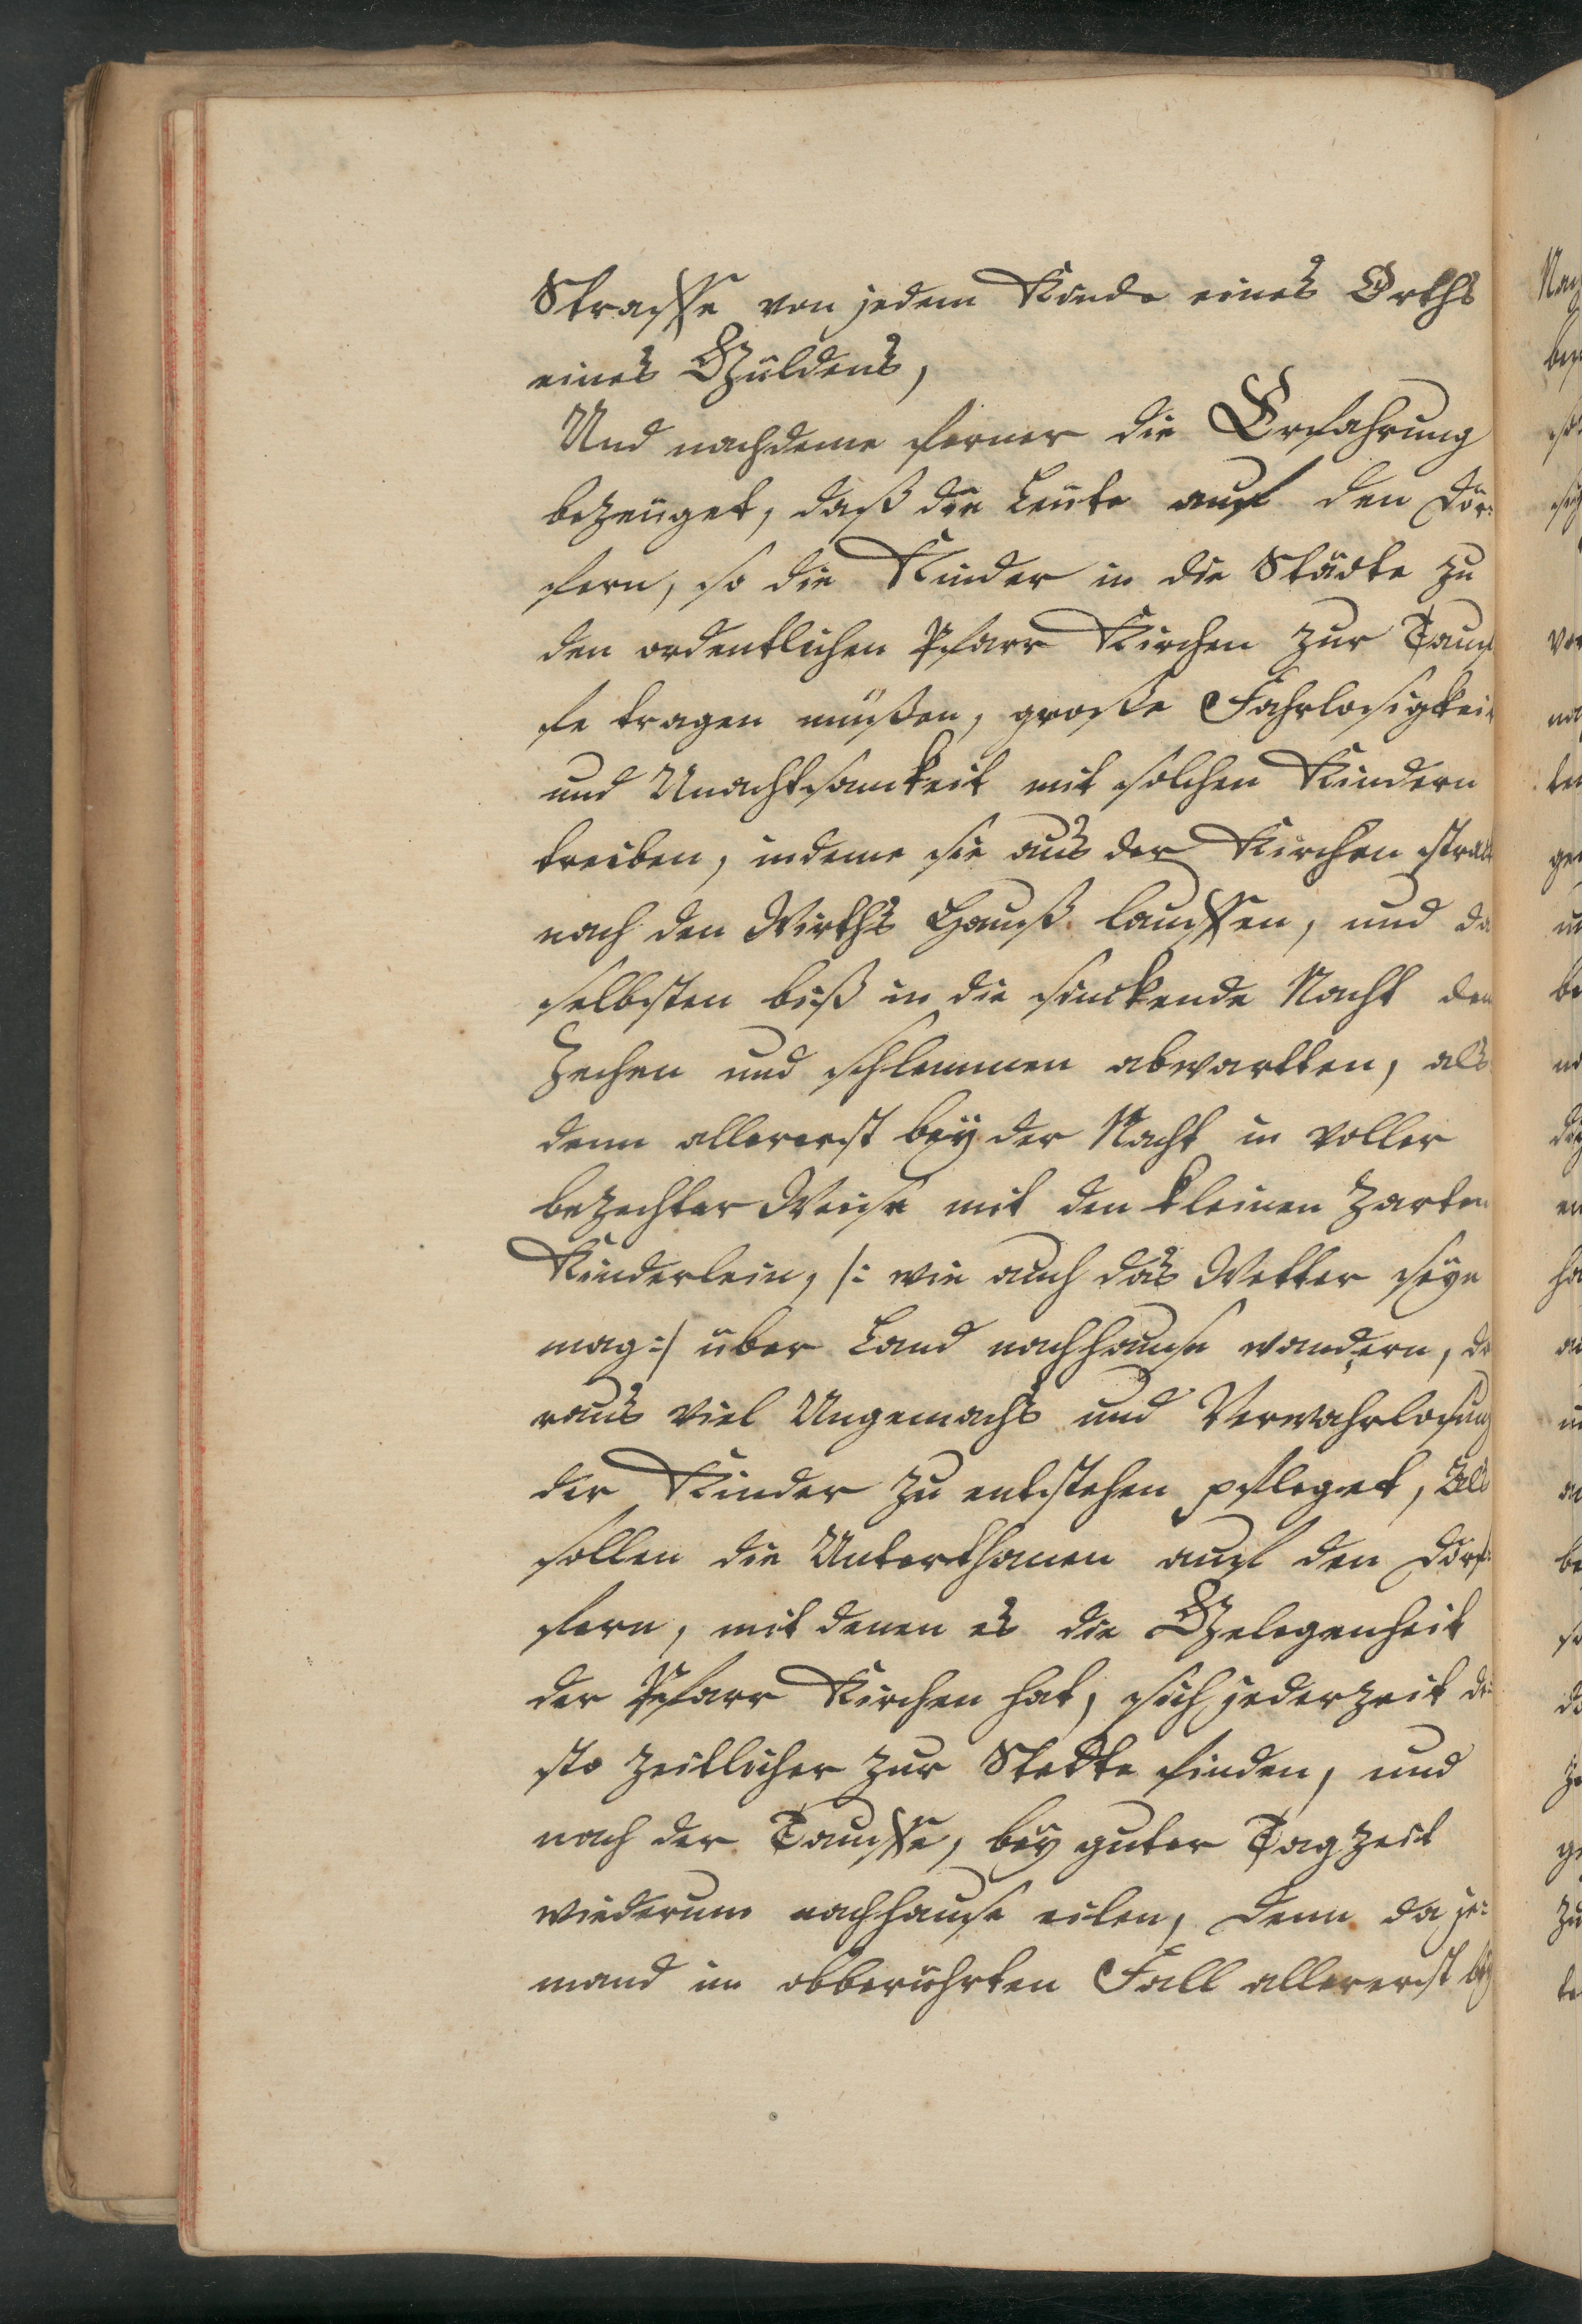 Straffe von jedem Kinde eines Orths
eines Güldens,
Und nachdeme ferner die Erfahrung
bezeüget, daß die Leüte auf den Dör:
fern, so die Kinder in die Städte zu
den ordentlichen Pfarr Kirchen zur Tauf
fe tragen müßen, große Fahrlosigkeit
und Unachtsamkeit mit solchen Kindern
treiben, indeme sie aus der Kirchen straks
nach den Wirths Hauß lauffen, und da
selbsten biß in die sinckende Nacht dem
Zechen und schlemmen abwartten, als
denn allererst bey der Nacht in voller
bezechter Weise mit den kleinen zarten
Kinderlein, /: wie auch das Wetter seye
mag :/ über Land nachhause wandern, da
raus viel Ungemachs und Verwahrlosung
der Kinder zu entstehen pfleget, Als
sollen die Unterthanen auf den Dörf:
fern, mit denen es die Gelegenheit
der Pfarr Kirchen hat, sich jederzeit de
sto zeitlicher zur Stette finden, und
nach der Tauffe, bey guter Tagzeit
wiederum nachhause eilen, denn da je:
mand im obberührten Fall allererst bey